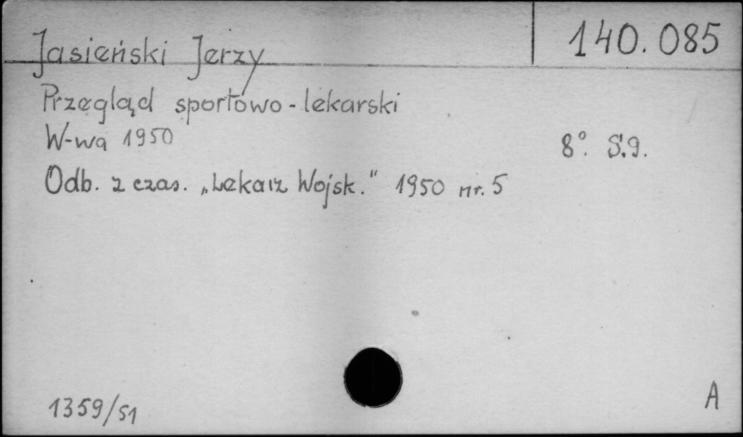 Jasieński Jerzy
140.085
Przegląd sportowo-lekarski
W-wa 1950
8° S.9.
Odb. z czas. „Lekarz Wojsk." 1950 nr. 5
1359/51
A